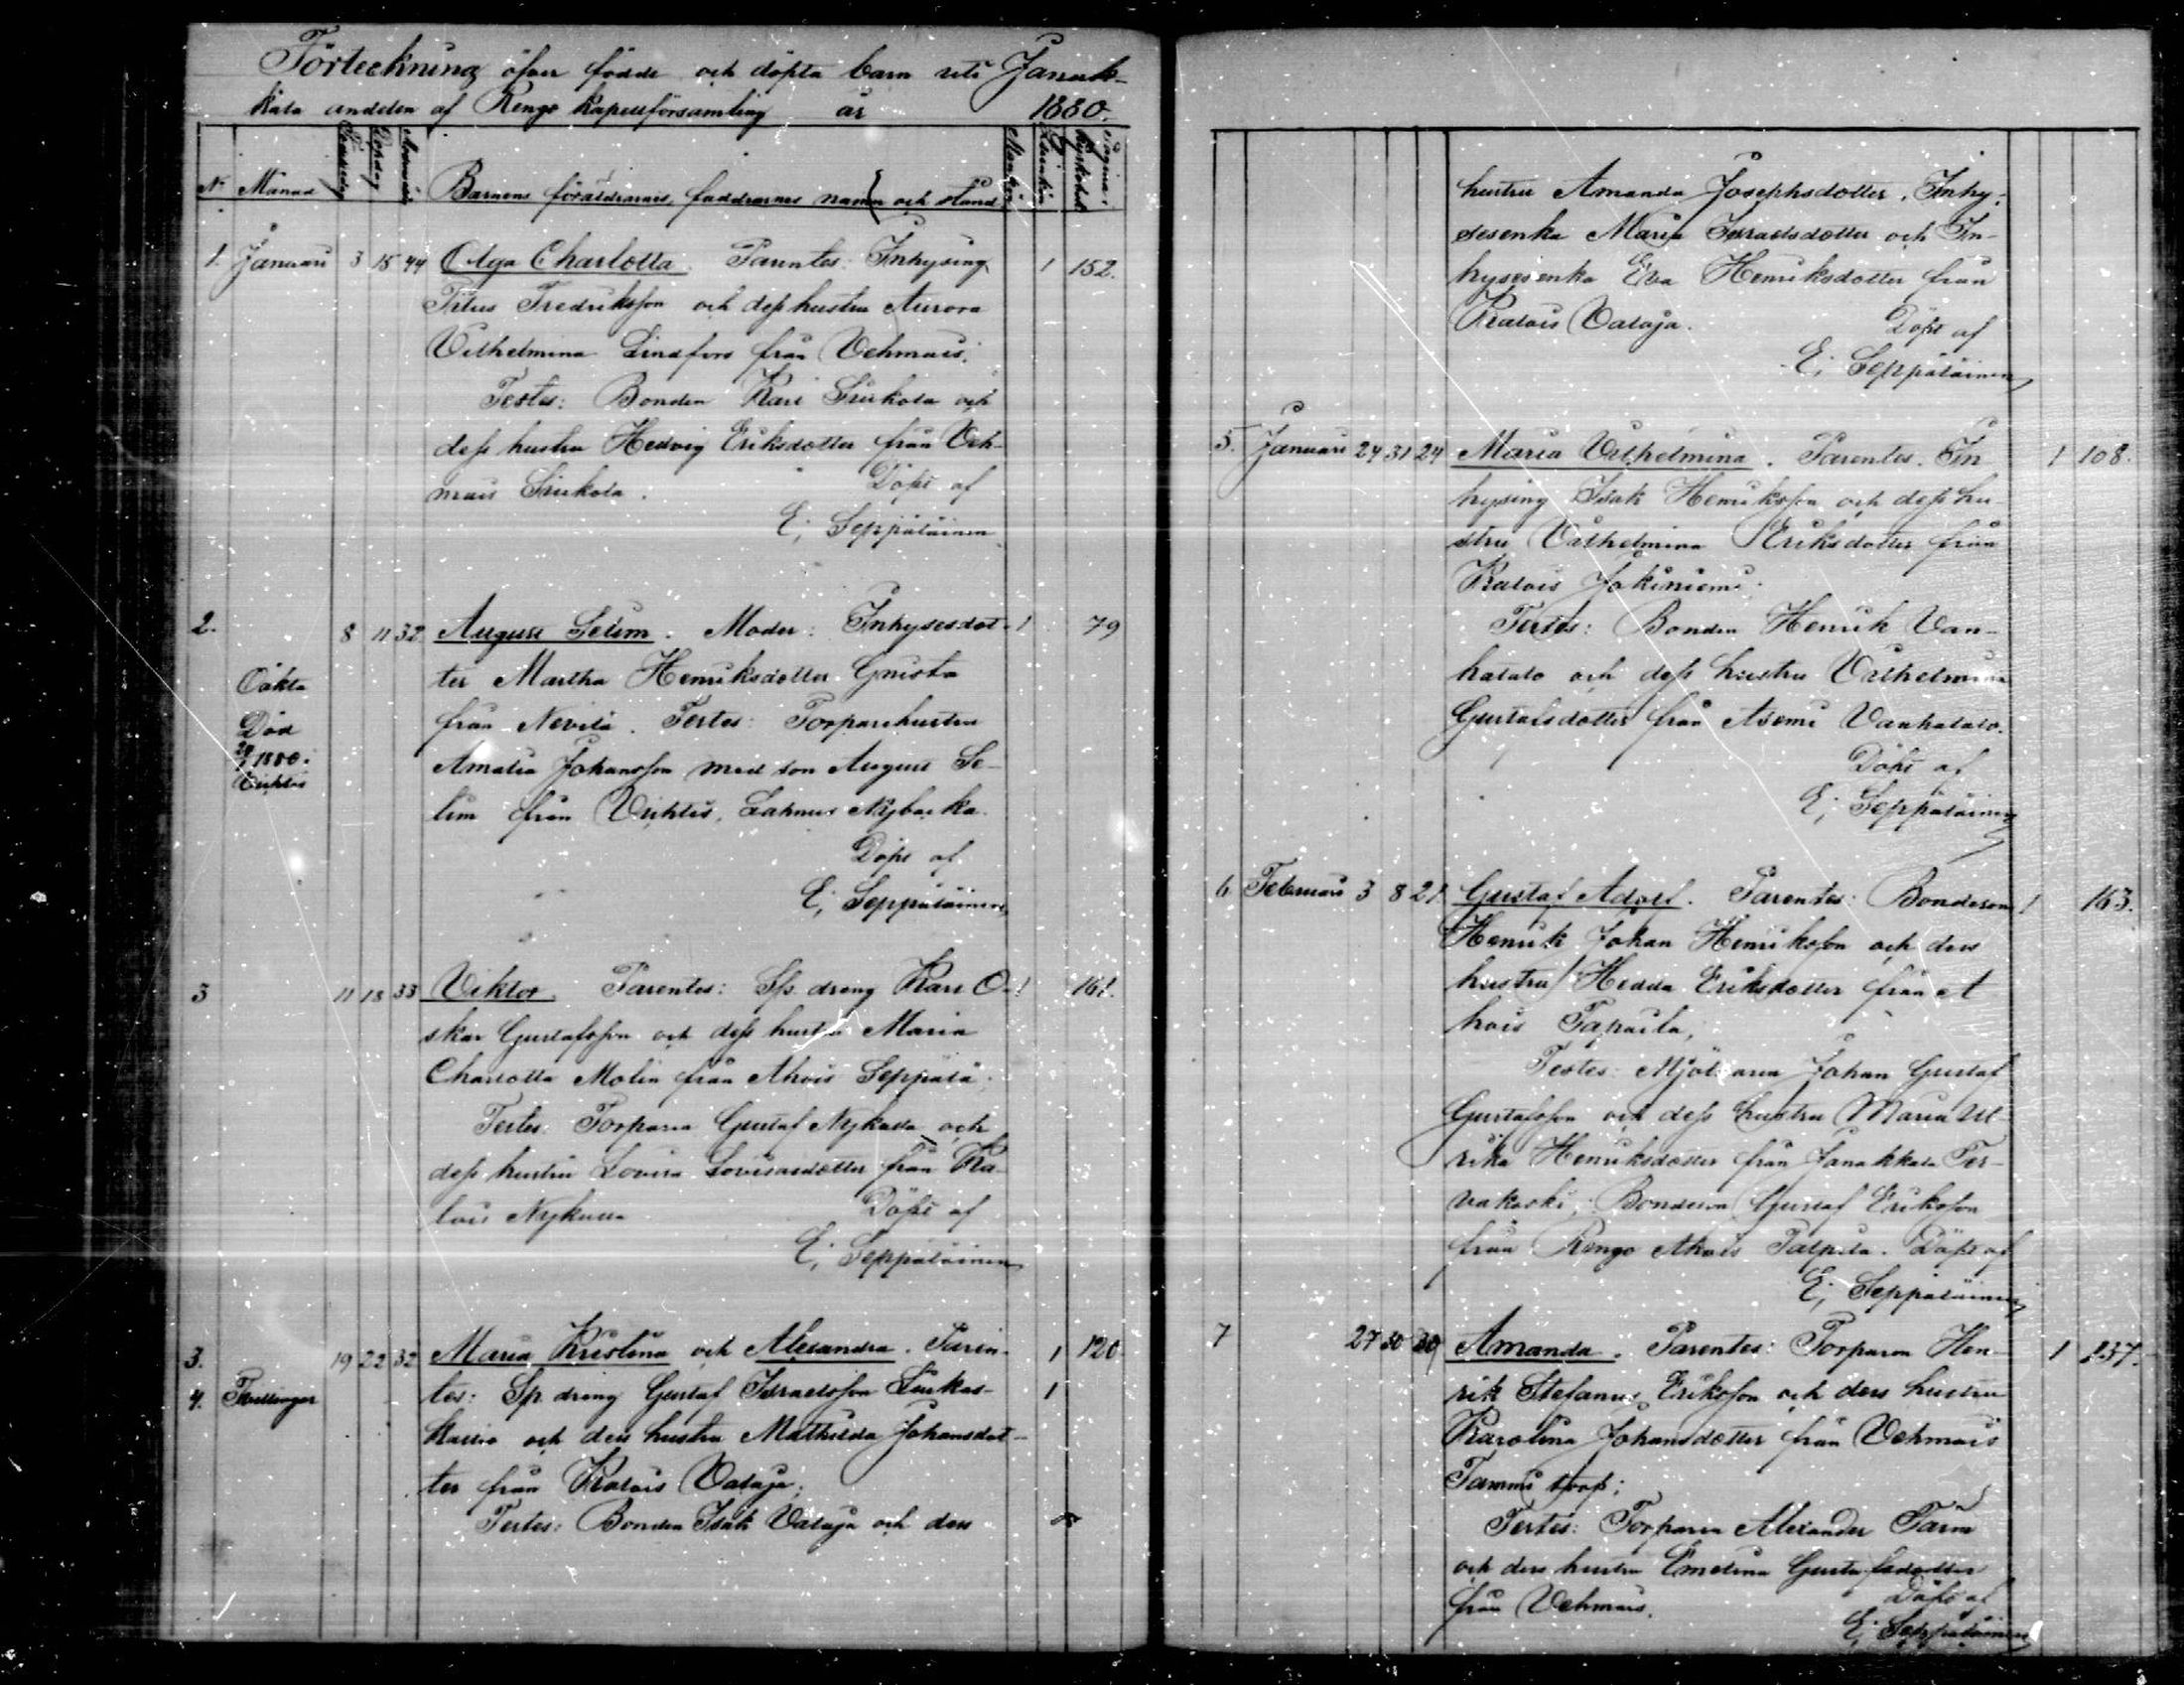 Förteckning öfver födde och döpta barn uti Janak-
kala andelen af Rengo Kapellförsamling år 1880.
No Månad Födelsedag Döpdag Barnens föräldrarnes, faddrarnes namn och stånd Mankön Qvinkön Pagina i Kyrkobok
1. Januari 3 15 44 Olga Charlotta. Parentes: Inhysing 1 152.
Titus Fredriksson och dess hustru Aurora
Vilhelmina Lindfors från Vehmais.
Testes: Bonden Karl Siukola och
dess hustru Hedvig Eriksdotter från Veh-
mais Siukola. Döpt af
E; Seppäläinen
2. 8 11 32 August Selim. Moder: Inhysesdot- 1 79
Oäkta ter Martha Henriksdotter Gnista
Död från Nevilä. Testes: Torparehustru
1880. Amalia Johansson med son August Se-
Vichtis lim från Vichtis, Lahnus Nybacka.
Döpt af
E; Seppäläinen
3 11 18 33 Viktor. Parentes: Sp. dreng Karl O- 1 161.
skar Gustafsson och dess hustru Maria
Charlotta Molin från Ahois Seppälä.
Testes: Torparen Gustaf Nykulla och
dess hustru Lovisa Lovisasdotter från Ka-
lois Nykulla Döpt af
E; Seppäläinen
3. 19 22 32 Maria Kristina och Alexandra. Paren- 1 120
4. Tvillingar tes: Sp. dreng Gustaf Israelsson Luukas-
kallio och dess hustru Mathilda Johansdot- 1
ter från Kalois Valaja;
Testes: Bonden Isak Valaja och dess
hustru Amanda Josephsdotter, Inhy-
sesenka Maria Israelsdotter och In-
hysesenka Eva Henriksdotter från
Kalois Valaja. Döpt af
E; Seppäläinen
5. Januari 24 31 24 Maria Vilhelmina. Parentes. In 1 108.
hysing Isak Henriksson och dess hu-
stru Vilhelmina Eriksdotter från
Kalois Jokiniemi.
Testes: Bonden Henrik Van-
hatalo och dess hustru Vilhelmina
Gustafsdotter från Asemi Vanhatalo.
Döpt af
E; Seppäläinen
6 Februari 3 8 21. Gustaf Adolf. Parentes: Bondeson 1 163.
Henrik Johan Henriksson och dess
hustru Hedda Eriksdotter från A
hois Tapaila,
Testes: Mjölnaren Johan Gustaf
Gustafsson och dess hustru Maria Ul
rika Henriksdotter från Janakkala Ter-
vakoski; Bondeson Gustaf Eriksson
från Rengo Ahois Talpila. Döpt af
E; Seppäläinen
7 27 30 30 Amanda. Parentes: Torparen Hen- 1 237.
rik Stefanus Eriksson och dess hustru
Karolina Johansdotter från Vehmais
Tammi torp;
Testes: Torparen Alexander Färm
och dess hustru Emelina Gustafsdotter
från Vehmais. Döpt af
E; Seppäläinen